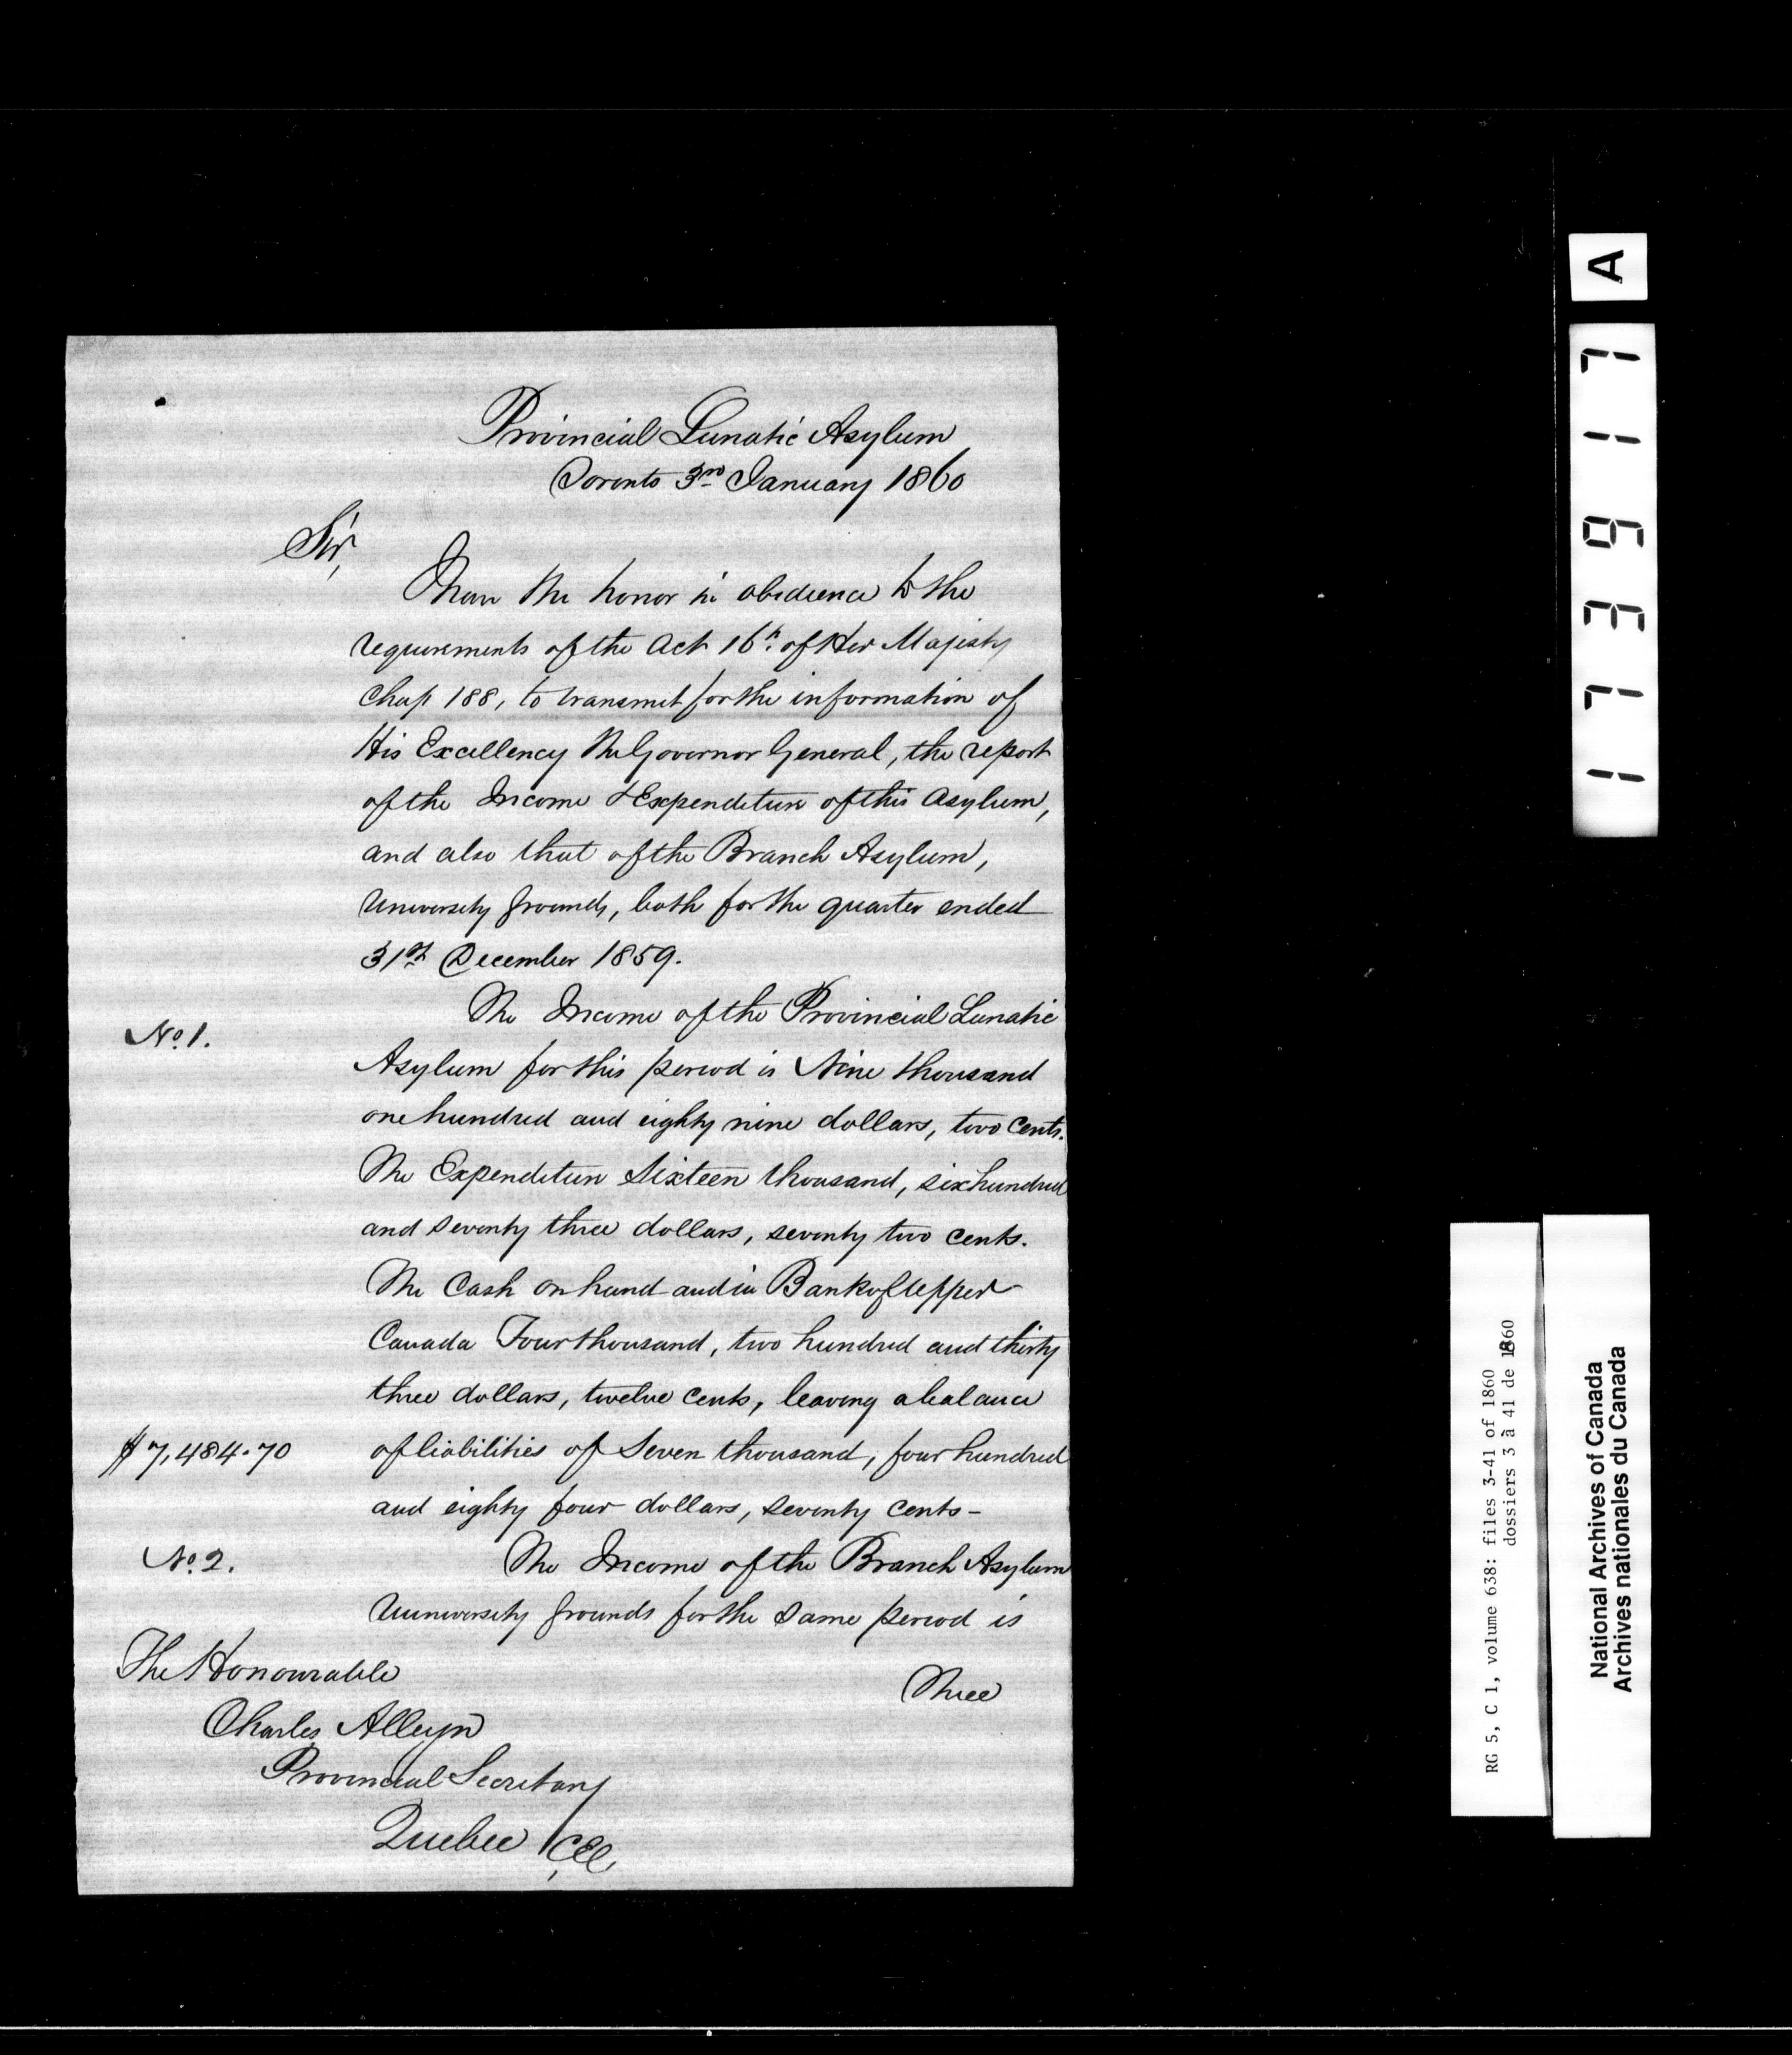 Provincial Lunatic Asylum
Toronto 3rd January 1860
Sir,
I have the honor in obedience to the
requirements of the Act 16th of Her Majesty
Chap 188, to transmit for the information of
His Excellency the Governor General, the report
of the Income & Expenditure of this Asylum,
and also that of the Branch Asylum,
University grounds, both for the quarter ended
31st December 1859.
No. 1.
The Income of the Provincial Lunatic
Asylum for this period is Nine thousand
one hundred and eighty nine dollars, two cents.
The Expenditure Sixteen thousand, six hundred
and seventy three dollars, seventy two cents.
The Cash on hand and in Bank of Upper
Canada Four thousand, two hundred and thirty
three dollars, twelve cents, leaving a balance
$7,484.70
of liabilities of Seven thousand, four hundred
and eighty four dollars, seventy cents -
No. 2.
The Income of the Branch Asylum
University grounds for the same period is
Three
The Honourable
Charles Alleyn
Provincial Secretary
Quebec
A
173917
RG 5, C 1, volume 638: files 3-41 of 1860
dossiers 3 à 41 de 1860
National Archives of Canada
Archives nationales du Canada